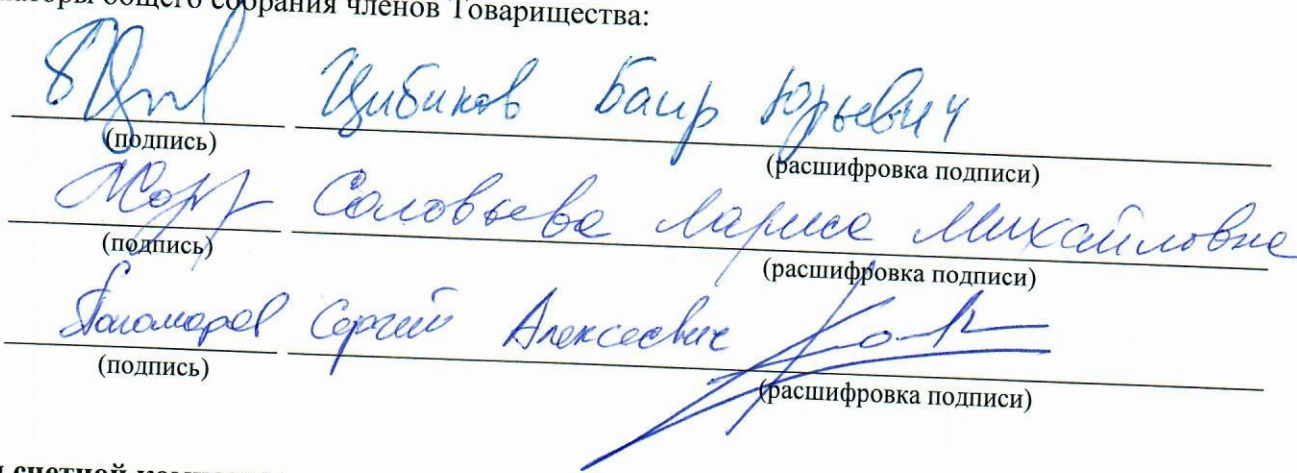 общего собрания членов Товарищества:
Цибиков Баир Юрьевич
(подпись) (расшифровка подписи)
Соловьева Лариса Михайловна
(подпись) (расшифровка подписи)
Сергей Алексеевич
(подпись) (расшифровка подписи)
счетной